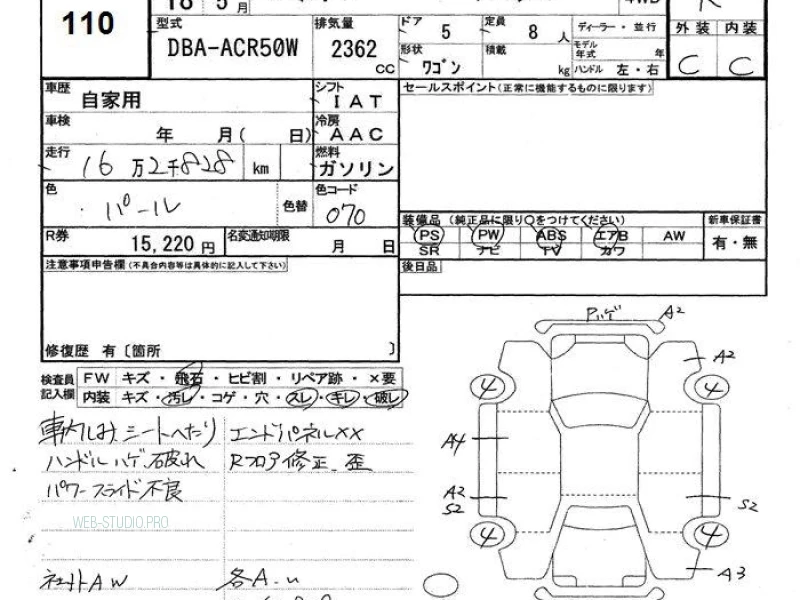 18 5月 4WD R
110
型式 DBA-ACR50W
排気量 2362 CC
ドア 5 定員 8 人
形状 ワゴン 積載 kg
ディーラー・並行
モデル年式 年
ハンドル 左・右
外装 内装
C C
車歴 自家用
シフト IAT
車検 年 月( 日)
冷房 AAC
走行 16万2千828 km
燃料 ガソリン
色 パール 色替
色コード 070
R券 15,220 円
名変通知期限 月 日
セールスポイント(正常に機能するものに限ります)
装備品 (純正品に限り○をつけてください)
PS PW ABS エアB AW
SR ナビ TV カワ
新車保証書
有・無
後日品
注意事項申告欄 (不具合内容等は具体的に記入して下さい)
修復歴 有〔箇所 〕
検査員記入欄
FW キズ・飛石・ヒビ割・リペア跡・×要
内装 キズ・汚レ・コゲ・穴・スレ・キレ・破レ
車内しみ シートへたり
ハンドルハゲ、破れ
パワースライド不良
エンドパネルXX
Rフロア修正、歪
WEB-STUDIO.PRO
社外AW
Pハゲ A2
A2
4 4
A4
A2
S2
S2
4 4
A3